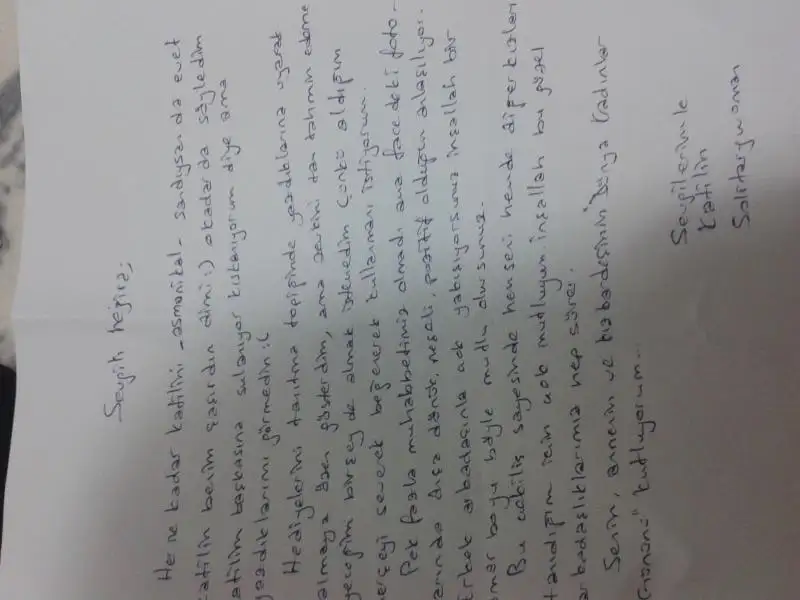 Sevgili hejira;
Her ne kadar katilini -asmanikal- sandıysan da evet
katilin benim şaşırdın dimi :) okadar da söyledim
katilim başkasına sulanıyor kıskanıyorum diye ama
yazdıklarımı görmedin :(
Hediyelerini tanıtma topiğinde yazdıklarına uyarak
almaya özen gösterdim, ama zevkini tam tahmin edeme
yeceğim birşey de almak istemedim çünkü aldığım
herşeyi severek beğenerek kullanmanı istiyorum.
Pek fazla muhabbetimiz olmadı ama facedeki foto-
larında dışa dönük, neşeli, pozitif olduğun anlaşılıyor.
Erkek arkadaşınla çok yakışıyorsunuz inşallah bir
ömür boyu böyle mutlu olursunuz.
Bu çekiliş sayesinde hem seni hemde diğer kızları
tanıdığım için çok mutluyum. inşallah bu güzel
arkadaşlıklarımız hep sürer.
Senin, annenin ve kızkardeşinin "Dünya Kadınlar
kutluyorum...
Sevgilerimle
Katilin
Solitarywoman